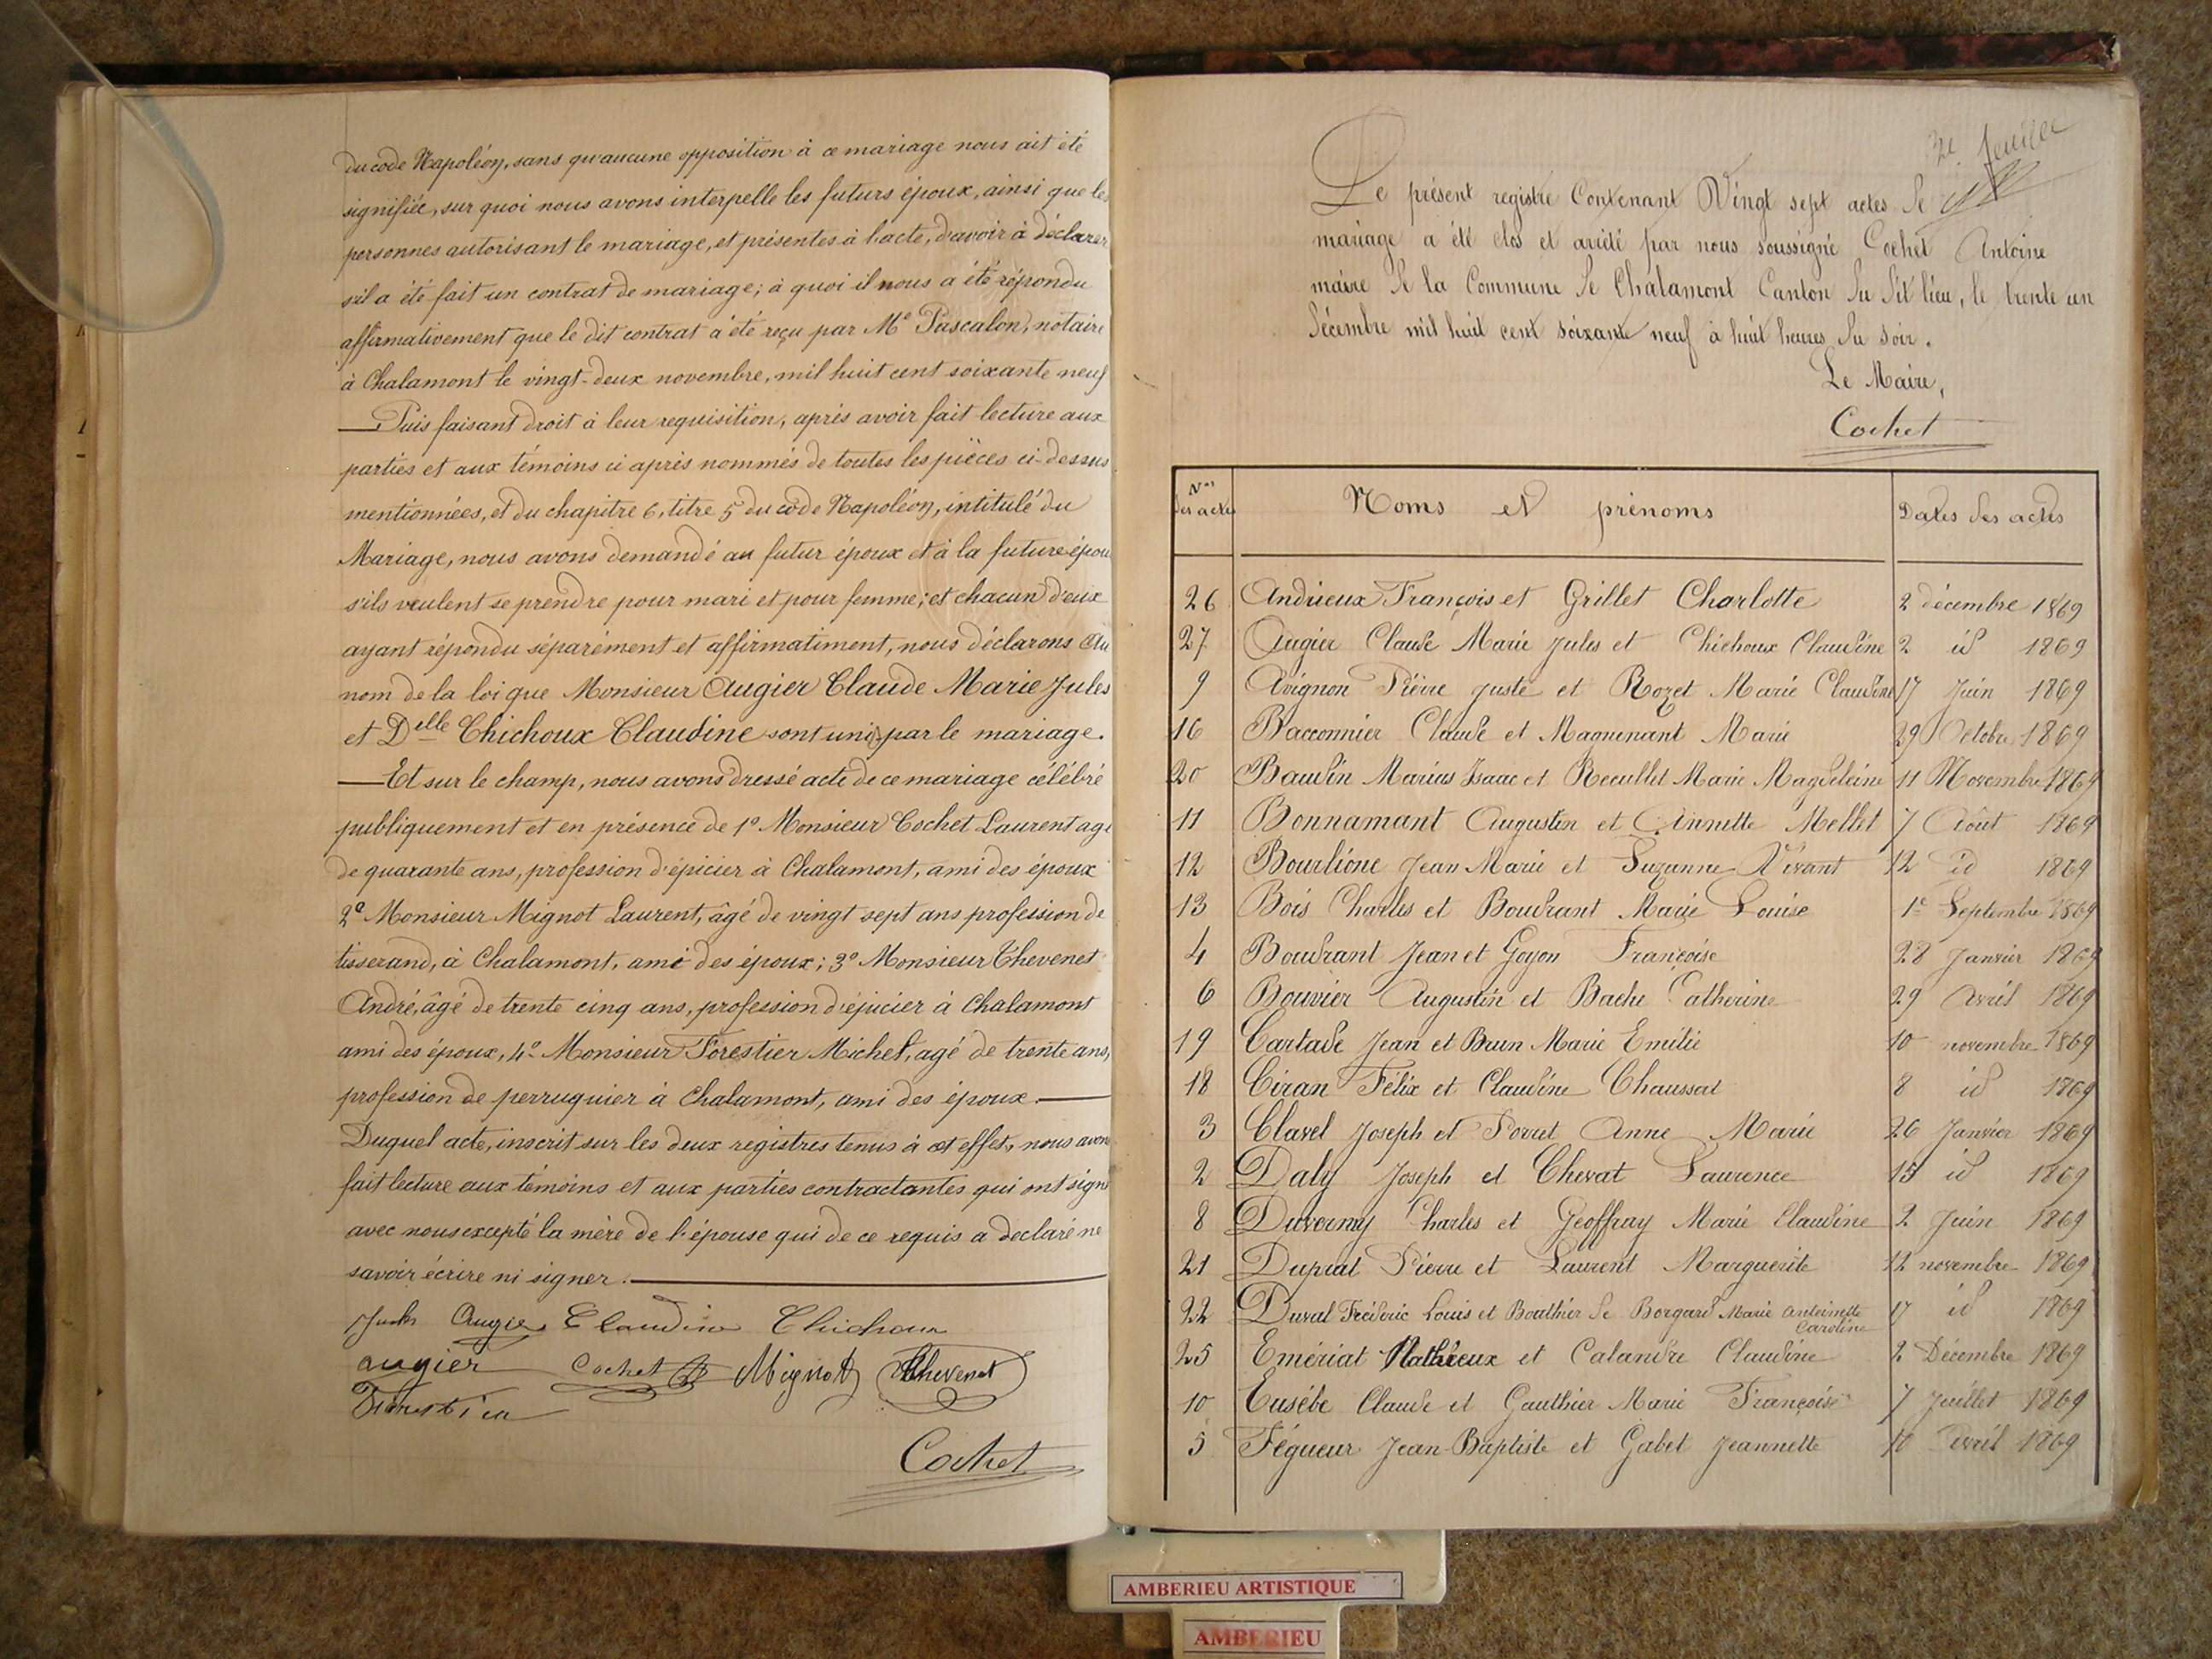 du code Napoléon, sans qu'aucune opposition à ce mariage nous ait été
signifiée, sur quoi nous avons interpelle les futurs époux, ainsi que les
personnes autorisant le mariage, et présentes à l'acte, d'avoir à déclarer
s'il a été fait un contrat de mariage; à quoi il nous a été répondu
affirmativement que le dit contrat a été reçu par Me Pascalon, notaire
à Chalamont le vingt-deux novembre, mil huit cent soixante neuf
Puis faisant droit à leur requisition, après avoir fait lecture aux
parties et aux témoins ci après nommés de toutes les pièces ci-dessus
mentionnées, et du chapitre 6, titre 5 du code Napoléon, intitulé du
Mariage, nous avons demandé au futur époux et à la future épou
s'ils veulent se prendre pour mari et pour femme; et chacun d'eux
ayant répondu séparément et affirmatiment, nous déclarons Au
nom de la loi que Monsieur Augier Claude Marie Jules
et Delle Chichoux Claudine sont unis par le mariage.
Et sur le champ, nous avons dressé acte de ce mariage célébré
publiquement et en présence de 1° Monsieur Cochet Laurent agé
de quarante ans, profession d'épicier à Chalamont, ami des époux
2° Monsieur Mignot Laurent, âgé de vingt sept ans profession de
tisserand, à Chalamont, ami des époux; 3° Monsieur Thevenet
André, âgé de trente cinq ans, profession d'épicier à Chalamont
ami des époux, 4° Monsieur Forestier Michel, agé de trente ans,
profession de perruquier à Chalamont, ami des époux.
Duquel acte, inscrit sur les deux registres tenus à cet effet, nous avons
fait lecture aux témoins et aux parties contractantes qui ont signé
avec nous excepté la mère de l'épouse qui de ce requis a declaré ne
savoir écrire ni signer.
Jules Augier Claudine Chichoux
augier Cochet Mignot Thevenet
Forestier
Cochet
2e feuille
Le présent registre Contenant Vingt sept actes de
mariage a été clos et arrêté par nous soussigné Cochet Antoine
maire de la Commune de Chalamont Canton du dit lieu, le trente un
décembre mil huit cent soixante neuf à huit heures du soir.
Le Maire,
Cochet
Nos des actes Noms et prénoms Dates des actes
26 Andrieux François et Grillet Charlotte 2 décembre 1869
27 Augier Claude Marie Jules et Chichoux Claudine 2 id 1869
9 Avignon Pierre Juste et Rozet Marie Claudine 17 Juin 1869
16 Bacconnier Claude et Magnenant Marie 29 Octobre 1869
20 Baudin Marius Isaac et Recullet Marie Magdeleine 11 Novembre 1869
11 Bonnamant Augustin et Annette Mellet 7 Août 1869
12 Bourlione Jean Marie et Suzanne Vivant 12 id 1869
13 Bois Charles et Boudrant Marie Louise 1e Septembre 1869
4 Boudrant Jean et Goyon Françoise 28 Janvier 1869
6 Bouvier Augustin et Bache Catherine 29 Avril 1869
19 Cartade Jean et Brun Marie Emélie 10 novembre 1869
18 Ciran Félix et Claudine Chaussat 8 id 1869
3 Clavel Joseph et Porret Anne Marie 26 Janvier 1869
2 Daly Joseph et Chevat Laurence 15 id 1869
8 Duvernay Charles et Geoffray Marie Claudine 2 Juin 1869
21 Duprat Pierre et Laurent Marguerite 12 novembre 1869
22 Duval Fréderic Louis et Bouthier de Borgard Marie Antoinette Caroline 17 id 1869
25 Emériat Mathieux et Calandre Claudine 2 Décembre 1869
10 Eusébe Claude et Gauthier Marie Françoise 7 Juillet 1869
5 Fégueur Jean-Baptiste et Gabet Jeannette 10 Avril 1869
AMBERIEU ARTISTIQUE
AMBERIEU